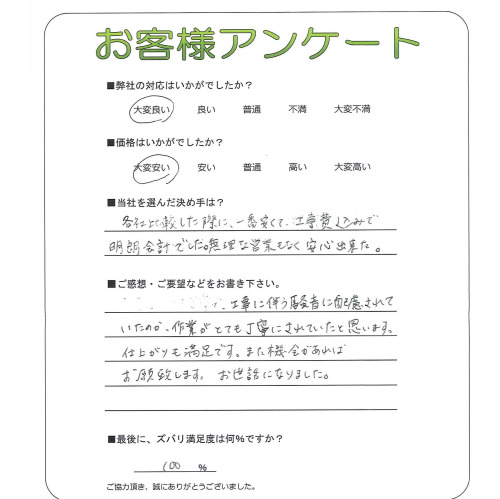 お客様アンケート
■弊社の対応はいかがでしたか？
大変良い 良い 普通 不満 大変不満
■価格はいかがでしたか？
大変安い 安い 普通 高い 大変高い
■当社を選んだ決め手は？
各社比較した際に、一番安くて、工事費込みで
明朗会計でした。無理な営業もなく安心出来た。
■ご感想・ご要望などをお書き下さい。
工事に伴う騒音に配慮されて
いたのか、作業がとても丁寧にされていたと思います。
仕上がりも満足です。また機会があれば
お願致します。 お世話になりました。
■最後に、ズバリ満足度は何％ですか？
100 ％
ご協力頂き、誠にありがとうございました。